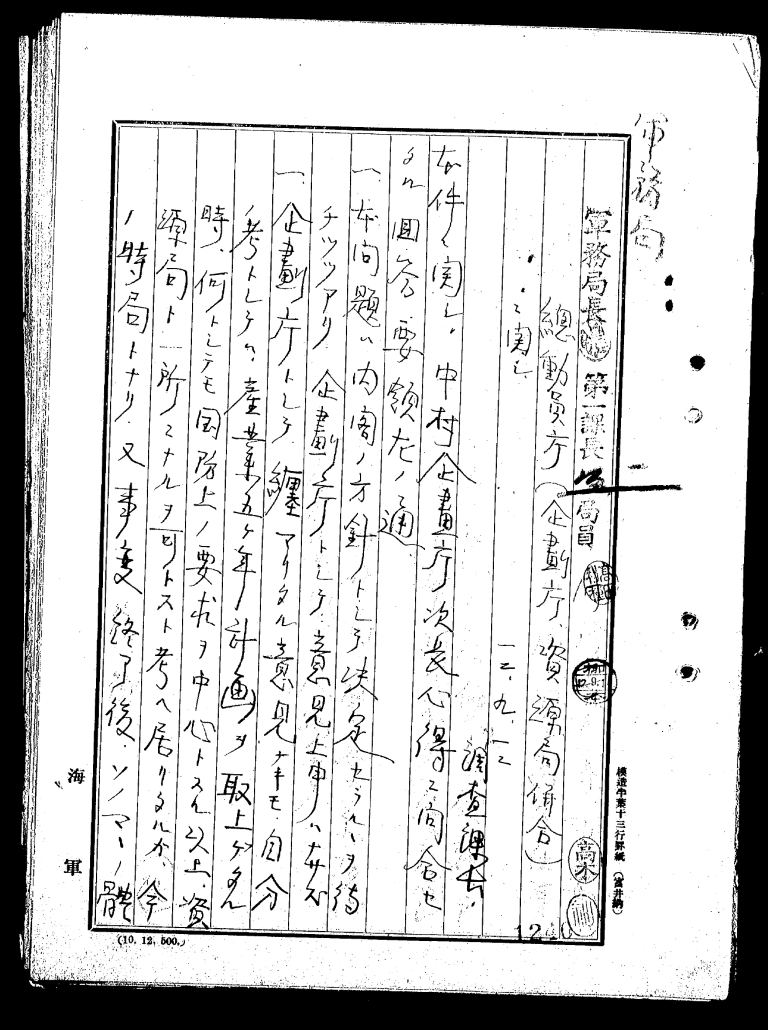 軍務局
軍務局長 第一課長 局員
總動員庁（企劃庁、資源局併合）
ニ関シ
一二、九、一二
調査課長
本件ニ関シ、中村企畫庁次長心得ニ問合セ
タル回答要領左ノ通
一、本問題ハ内閣ノ方針トシテ決定セラルヽヲ待
チツツアリ 企劃庁トシテ意見上申ハナサズ
一、企劃庁トシテ纏マリタル意見ナキモ自分
ノ考トシテハ、産業五ケ年計画ヲ取上ゲタル
時、何トシテモ国防上ノ要求ヲ中心トスル以上、資
源局ト一所ニナルヲ可トスト考ヘ居リタルガ、今
ノ時局トナリ、又事変終了後、ソノマヽノ體
高木
模造半葉十三行罫紙（富井納）
海軍
(10. 12, 500.)